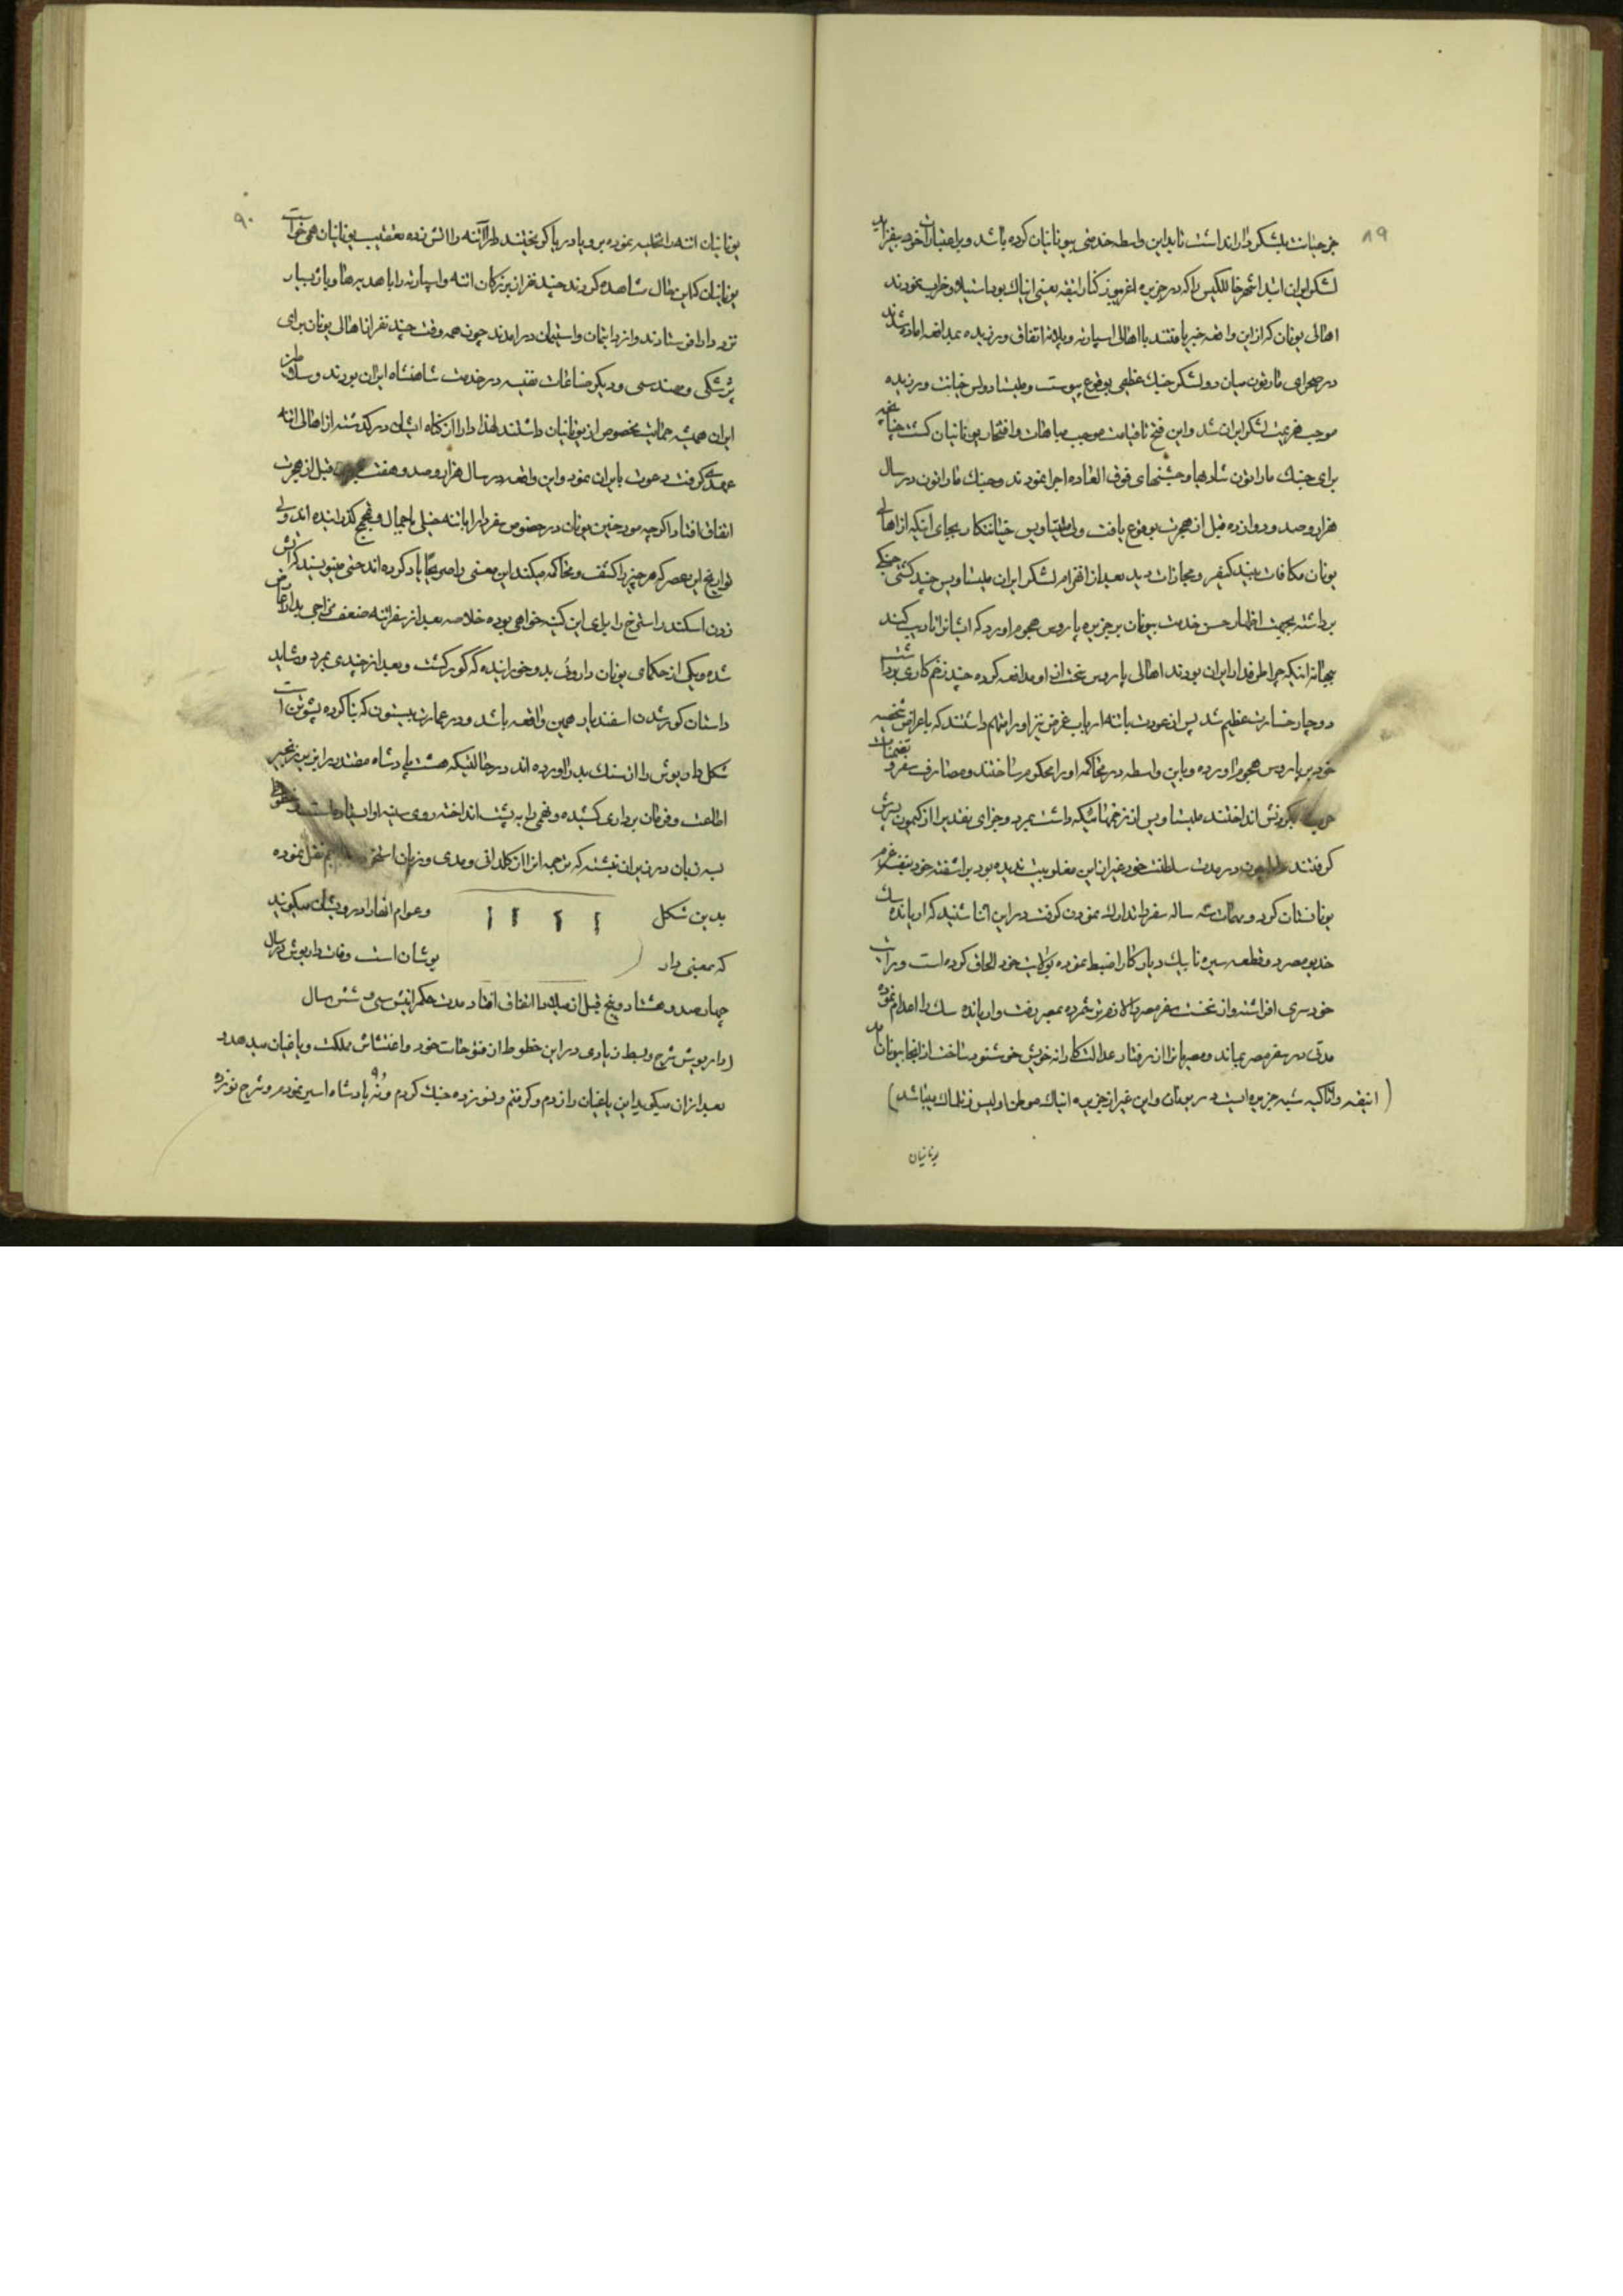 ۸۹
جز خیانت بلشکر دارا نداشت تا بداین واسطه خدمتی بیونانیان کرده باشد و بر اعتبارات خود بیفزاید
لشکر ایران ابتدا شهر خالکیس را که در جزیره اغریبوز کنار اتیقه یعنی اتیاک بود استیلا و خراب نمودند
اهالی یونان که از این واقعه خبر یافتند با اهالی اسپارته و پلاته اتفاق ورزیده بمدافعه اماده شدند
در صحرای ماراتون میان دو لشکر جنک عظیمی بوقوع پیوست و ملیتیادوس خیانت ورزیده
موجب هزیمت لشکر ایران شد و این فتح تا قیامت موجب مباهات و افتخار یونانیان کشت چنانچه
برای جنک ماراتون شادیها و جشنهای فوق العاده اجرا نمودند و جنک ماراتون در سال
هزار و صد و دوازده قبل از هجرت بوقوع یافت ولی ملیتیاویس خیانتکار بجای اینکه از اهالی
یونان مکافات بیند کیفر و مجازات دید بعد از انهزام لشکر ایران ملیتیاویس چند کشتی جنکی
برداشته بجهت اظهار حسن خدمت بیونان بر جزیره پاروس هجوم اورد که ایشانرا تادیب کند
ببهانه اینکه چرا طرفدار ایران بودند اهالی پاروس سخت از او مدافعه کرده چند زخم کاری برداشته
دوچار خسارت عظیم شد پس از عودت باتنه ارباب غرض نیز او را متهم داشتند که باغراض شخصیه
خود بر پاروس هجوم اورده و باین واسطه در محاکمه او را محکوم ساختند و مصارف سفر و تضمینات
حرب بکردنش انداختند ملیتیاویس از زخمهائیکه داشت بمرد و جزای نقدیرا از کیمون پسرش
کرفتند دارا چون در مدت سلطنت خود غیر از این مغلوبیت ندیده بود براشفته خود بنفسه عزم
یونانستان کرد و مهمات سه ساله سفر را تدارک نمودن کرفت در این اثنا شنید که اریانده سک
خدیو مصر و قطعه سیره نا بیک دربار کارا ضبط نموده بولایت خود الحاق کرده است و رایت
خودسری افراشته و از نخست سفر مصر را لازمتر شمرده بمصر رفت و اریانده سک را اعدام نموده
مدتی در سفر مصر بماند و مصریانرا از رفتار عدالتکارانه خویش خوشنود ساخت از انجا بیونان امد
(اتیقه و اتاکیه شبه جزیره ایست در یونان و این غیر از جزیره اتیاک موطن اولیس فرنکها میباشد)
یونانیان
۹۰
یونانیان اتنه را تخلیه نموده بر و یا دریا کریختند دارا اتنه را اتش زده بتعقیب یونانیان همی خواست
یونانیان که این حال مشاهده کردند چند نفر از بزرکان اتنه و اسپارته را با هدیه ها و باژ بسیار
نزد دارا فرستادند و از در ایتمان و استیمان درامدند چون همه وقت چند نفر از اهالی یونان برای
پزشکی و مهندسی و دیکر صناعات نفیسه در خدمت شاهنشاه ایران بودند و سلاطین
ایران همیشه حمایت مخصوص از یونانیان داشتند لهذا دارا از کناه ایشان درکذشته از اهالی اتنه
عهدی کرفت و عودت بایران نمود و این واقعه در سال هزار و صد و هفت قبل از هجرت
اتفاق افتاد اکرچه مورخین یونان در خصوص سفر دارا باتنه خیلی باجمال و مجمج کذرانیده اند ولی
تواریخ این عصر که هر چیز را کشف و محاکمه میکند این معنی را صریحاً یاد کرده اند حتی مینویسند که اتش
زدن اسکندر استخر را برای این کینه خواهی بوده خلاصه بعد از سفر اتنه ضعف مزاجی بدارا عارض
شده و یکی از حکمای یونان داروئی بدو خورانیده که کور کشت و بعد از چندی بمرد و شاید
داستان کور شدن اسفندیار همین واقعه باشد و در عمارت بیستون که بنا کرده پشوتن است
شکل داریوش را از سنک بدر اورده اند در حالتیکه هشت پادشاه مقتدر را بزیر زنجیر
اطاعت و فرمان برداری کشیده و خمی را به پشت انداخته روی سینه او ایستاده است و خطوط
بسه زبان در زیر ان نبشته که ترجمه انرا از کلدانی و مدی و زبان استخر هم نقل نموده
بدین شکل و عوام انها را درویشان میکویند
که بمعنی دار یوشان است وفات داریوش در سال
چهار صد و هشتاد و پنج قبل از میلاد اتفاق افتاد مدت حکمرانیش سی و شش سال
(داریوش شرح و بسط زیادی در این خطوط از فتوحات خود و اغتشاش مملکت و یاغیان میدهد و
بعد از ان میکوید این یاغیان را زدم و کرفتم و نوزده جنک کردم و نه ۹ پادشاه اسیر نمودم و شرح نوزده